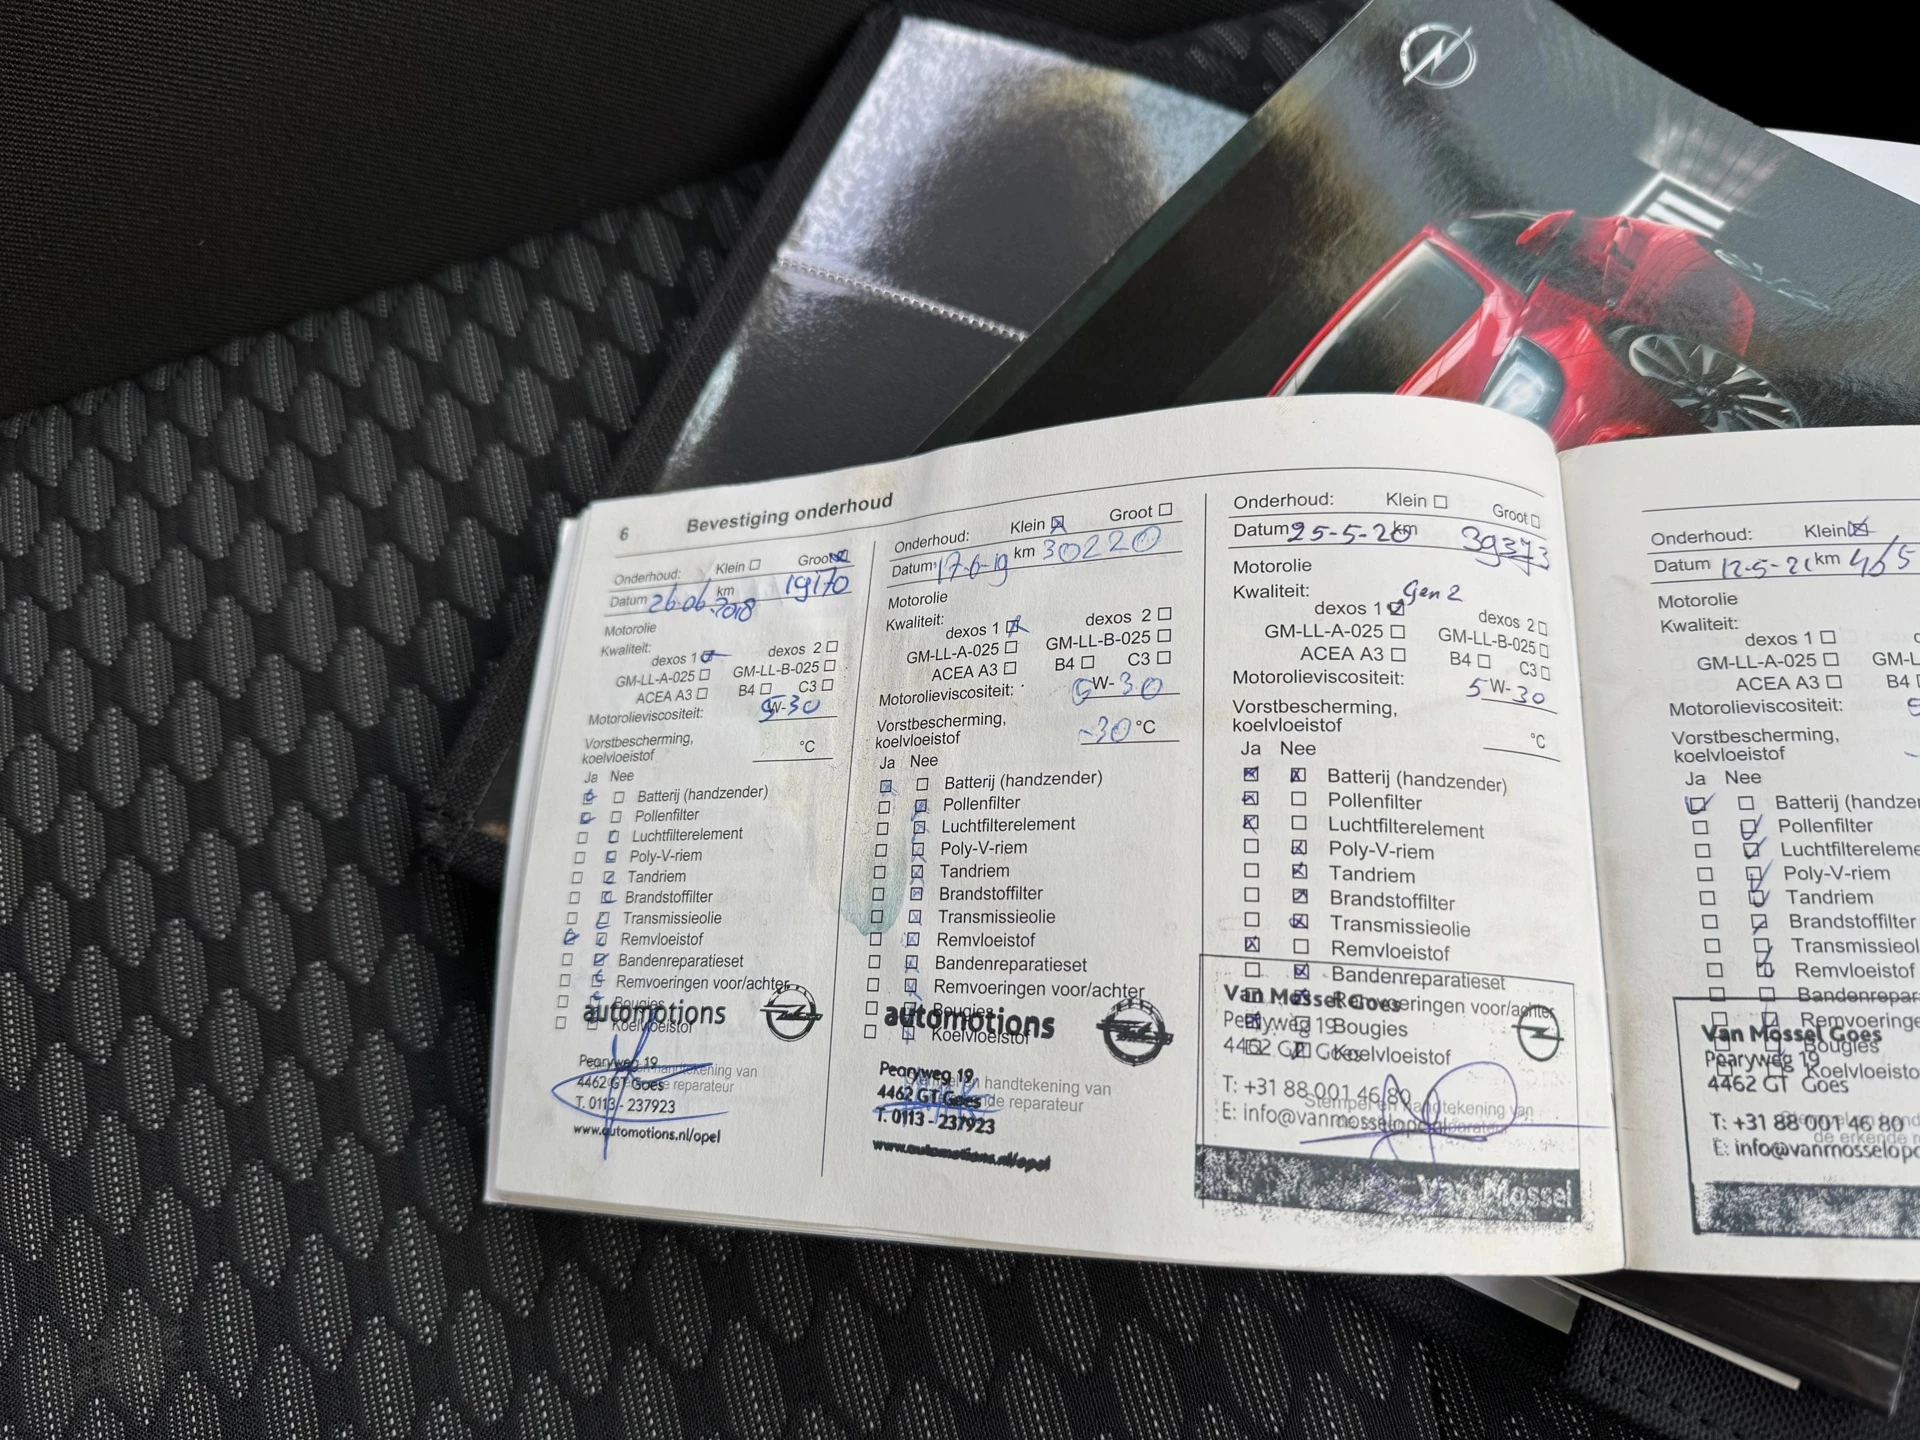 6 Bevestiging onderhoud
Onderhoud: Klein Groot
Datum 26-06-2018 km 19170
Motorolie
Kwaliteit:
dexos 1 dexos 2
GM-LL-A-025 GM-LL-B-025
ACEA A3 B4 C3
Motorolieviscositeit: 5W-30
Vorstbescherming,
koelvloeistof °C
Ja Nee
Batterij (handzender)
Pollenfilter
Luchtfilterelement
Poly-V-riem
Tandriem
Brandstoffilter
Transmissieolie
Remvloeistof
Bandenreparatieset
Remvoeringen voor/achter
Bougies
Koelvloeistof
automotions
Pearyweg 19
4462 GT Goes
T. 0113 - 237923
www.automotions.nl/opel
Onderhoud: Klein Groot
Datum 17-6-19 km 30220
Motorolie
Kwaliteit:
dexos 1 dexos 2
GM-LL-A-025 GM-LL-B-025
ACEA A3 B4 C3
Motorolieviscositeit: 5W-30
Vorstbescherming,
koelvloeistof -30 °C
Ja Nee
Batterij (handzender)
Pollenfilter
Luchtfilterelement
Poly-V-riem
Tandriem
Brandstoffilter
Transmissieolie
Remvloeistof
Bandenreparatieset
Remvoeringen voor/achter
Bougies
Koelvloeistof
automotions
Pearyweg 19
4462 GT Goes
T. 0113 - 237923
www.automotions.nl/opel
Onderhoud: Klein Groot
Datum 25-5-20 km 39373
Motorolie
Kwaliteit: Gen 2
dexos 1 dexos 2
GM-LL-A-025 GM-LL-B-025
ACEA A3 B4 C3
Motorolieviscositeit: 5W-30
Vorstbescherming,
koelvloeistof °C
Ja Nee
Batterij (handzender)
Pollenfilter
Luchtfilterelement
Poly-V-riem
Tandriem
Brandstoffilter
Transmissieolie
Remvloeistof
Bandenreparatieset
Remvoeringen voor/achter
Bougies
Koelvloeistof
Van Mossel Goes
Pearyweg 19
4462 GT Goes
T: +31 88 001 46 80
Stempel en handtekening van
E: info@vanmosselopel
Van Mossel
Onderhoud: Klein
Datum 12-5-21 km 465
Motorolie
Kwaliteit:
dexos 1
GM-LL-A-025 GM-L
ACEA A3 B4
Motorolieviscositeit:
Vorstbescherming,
koelvloeistof
Ja Nee
Batterij (handzen
Pollenfilter
Luchtfiltereleme
Poly-V-riem
Tandriem
Brandstoffilter
Transmissieol
Remvloeistof
Bandenrepar
Remvoeringe
Bougies
Koelvloeisto
Van Mossel Goes
Pearyweg 19
4462 GT Goes
T: +31 88 001 46 80
E: info@vanmosselop